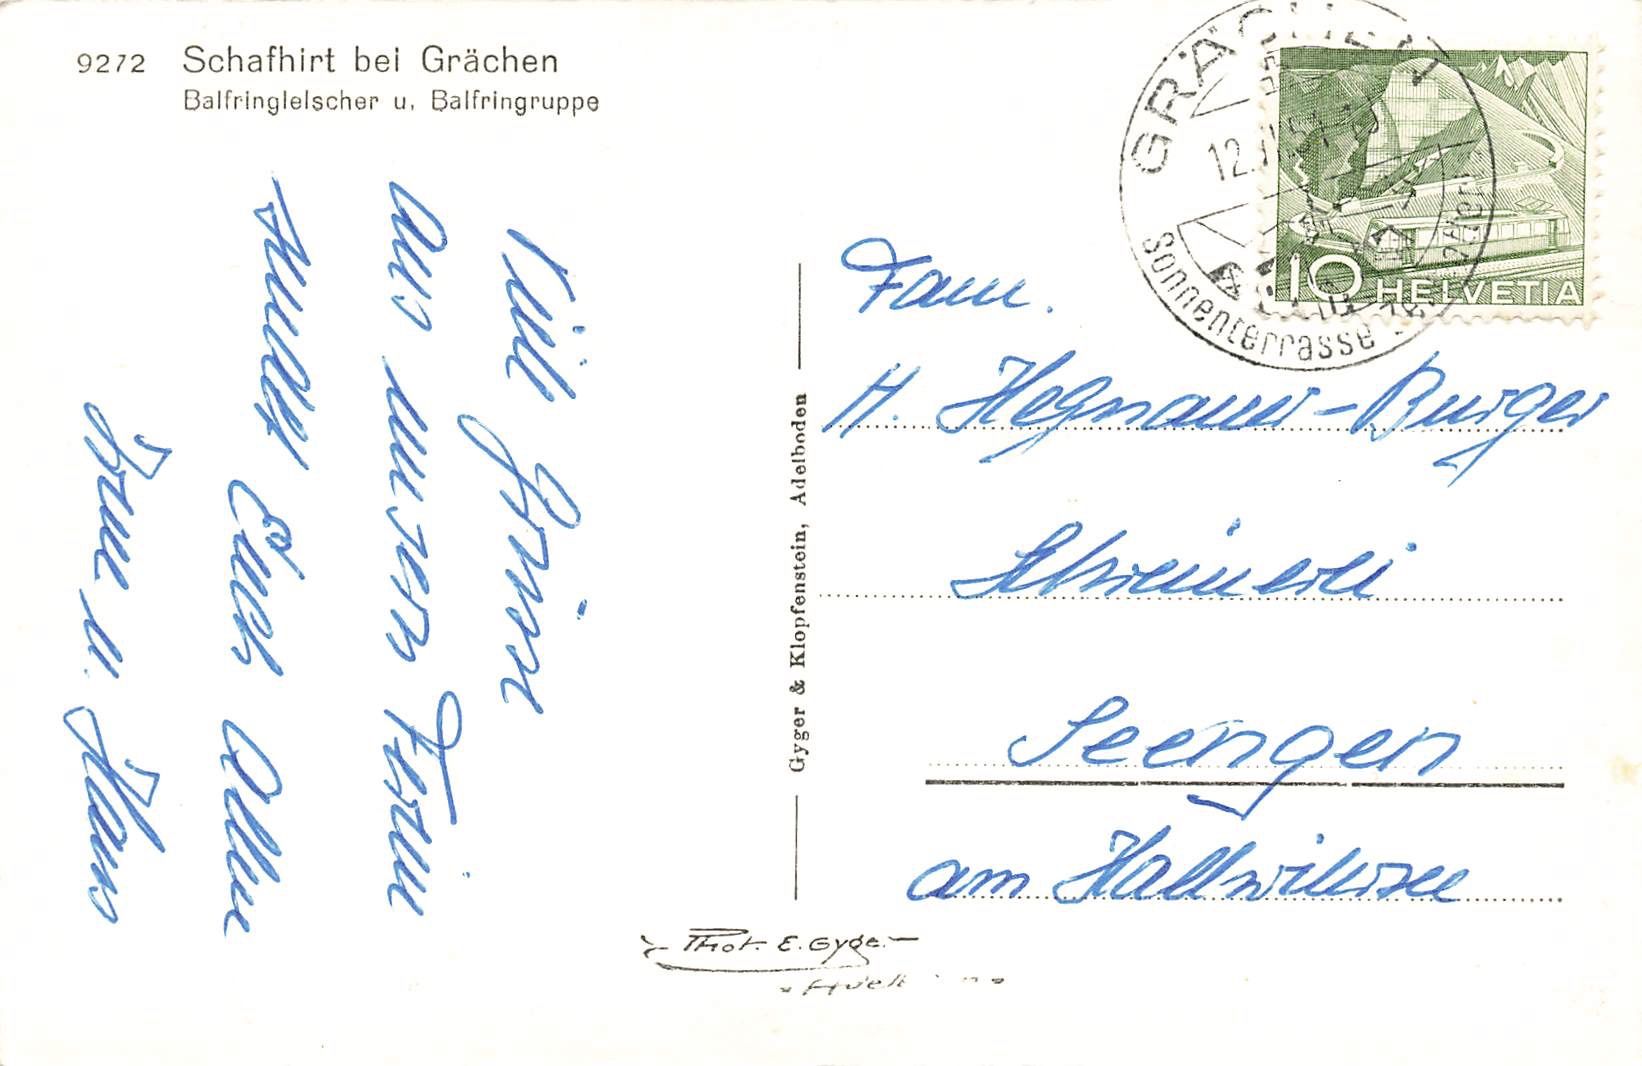 9272 Schafhirt bei Grächen
Balfringletscher u. Balfringruppe
Viele Grüsse
aus unsern Ferien
sendet Euch allen
u. Hans
Gyger & Klopfenstein, Adelboden
GRÄCHEN
12.
Sonnenterrasse
10 HELVETIA
Fam.
H. Hegnauer-Burger
Schreinerei
Seengen
am Hallwilersee
Phot. E. Gyger